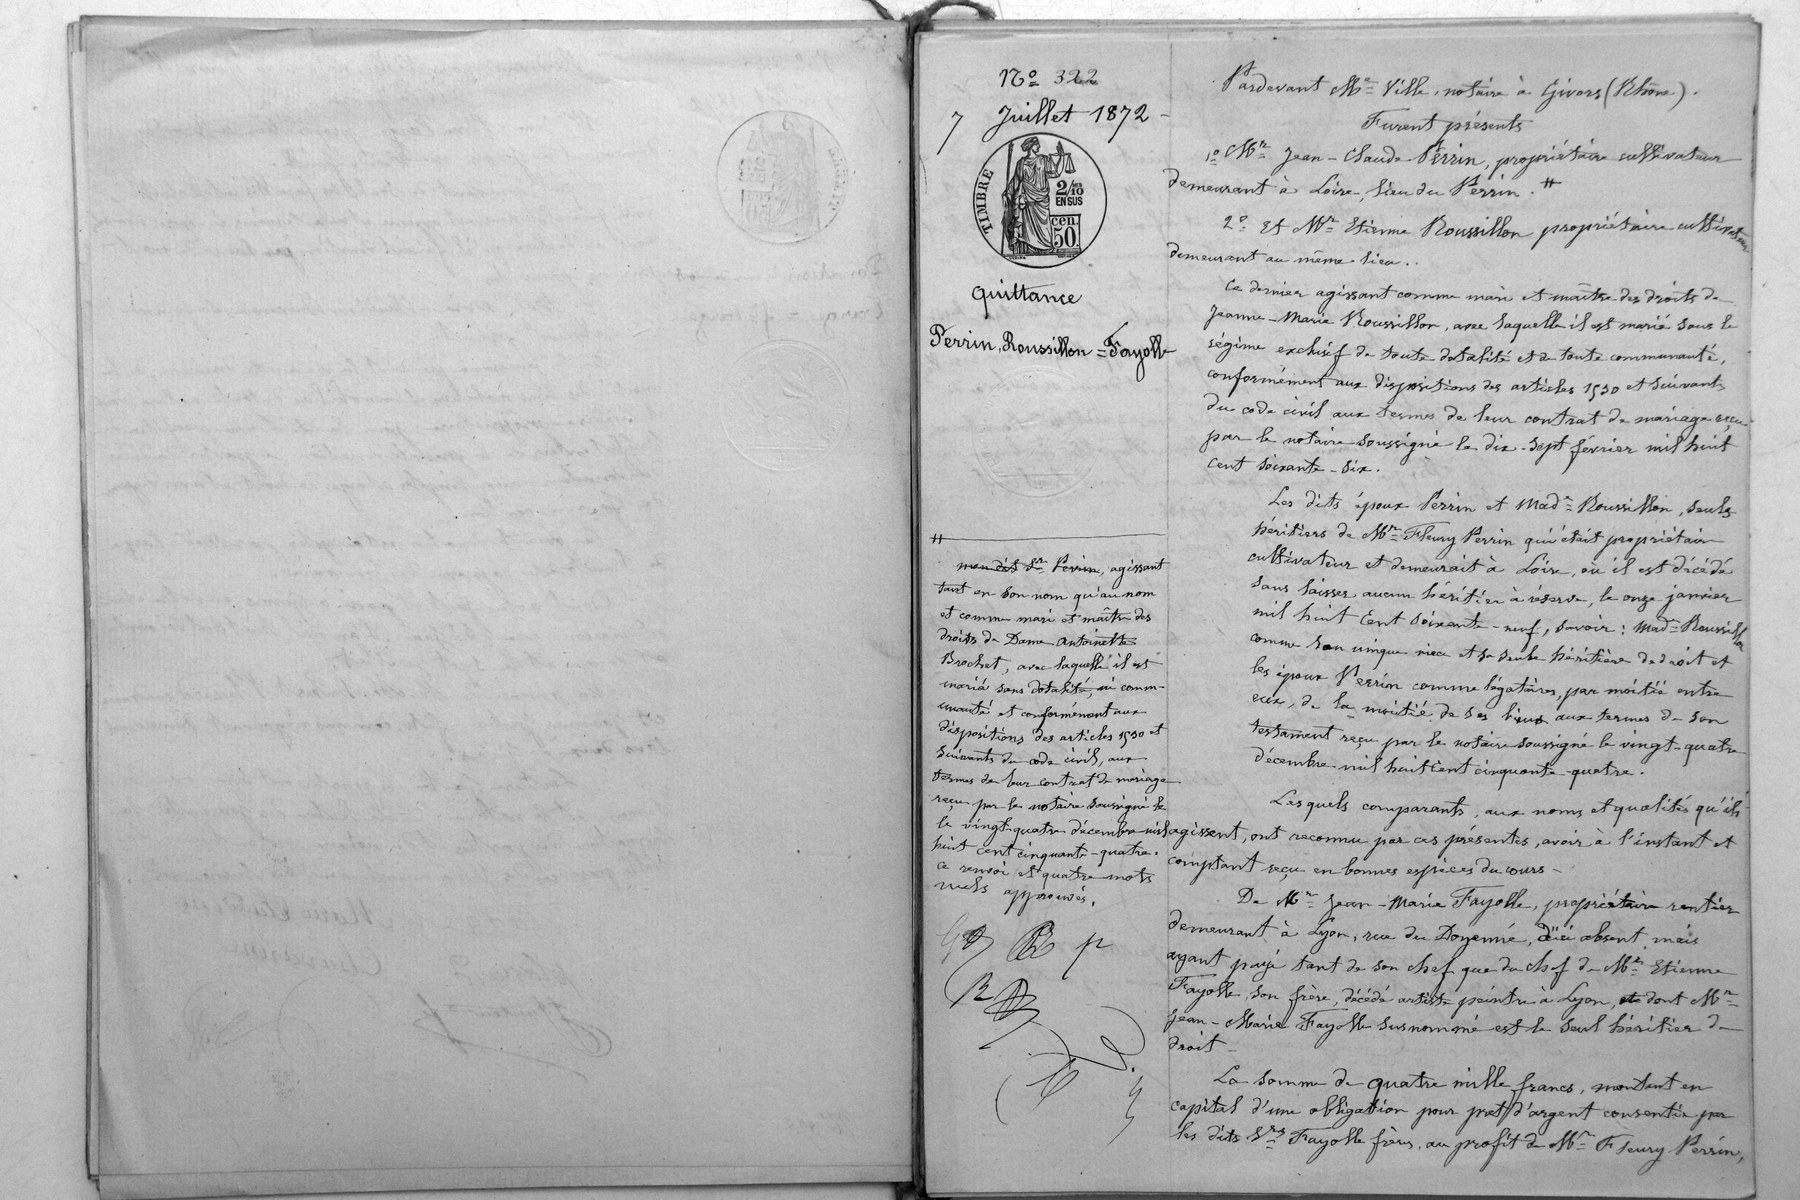 No 322
7 Juillet 1872
TIMBRE
2/10
EN SUS
cen.
50
Quittance
Perrin, Roussillon = Fayolle
#
mon dit Sr Perrin, agissant
tant en son nom qu'au nom
et comme mari et maître des
droits de Dame Antoinette
Brochet, avec laquelle il est
marié sans dotalité, ni comm-
unauté et conformément aux
dispositions des articles 1530 et
suivants du code civil, aux
termes de leur contrat de mariage
reçu par le notaire soussigné le
le vingt-quatre décembre mil
huit cent cinquante-quatre.
ce renvoi et quatre mots
nuls approuvés.
Pardevant Me Ville, notaire à Givors (Rhône).
Furent présents
1o Mr Jean-Claude Perrin, propriétaire cultivateur
demeurant à Loire, lieu du Perrin. #
2o Et Mr Etienne Roussillon propriétaire cultivateur
demeurant au même lieu..
Ce dernier agissant comme mari et maître des droits de
Jeanne-Marie Roussillon, avec laquelle il est marié sous le
régime exclusif de toute dotalité et de toute communauté,
conformément aux dispositions des articles 1530 et suivants
du code civil aux termes de leur contrat de mariage reçu
par le notaire soussigné le dix-sept février mil huit
cent soixante-six.
Les dits époux Perrin et Made Roussillon, seuls
héritiers de Mr Fleury Perrin qui était propriétaire
cultivateur et demeurait à Loire, où il est décédé
sans laisser aucun héritier à réserve, le onze janvier
mil huit cent soixante-neuf, savoir: Made Roussillon
comme son unique nièce et sa seule héritière de droit et
les époux Perrin comme légataires, par moitié entre
eux, de la moitié de ses biens aux termes de son
testament reçu par le notaire soussigné le vingt-quatre
décembre mil huit cent cinquante-quatre.
Lesquels comparants, aux noms et qualités qu'ils
agissent, ont reconnu par ces présentes, avoir à l'instant et
comptant reçu en bonnes espèces du cours-
De Mr Jean-Marie Fayolle, propriétaire rentier
demeurant à Lyon, rue du Doyenné, absent mais
ayant payé tant de son chef que du chef de Mr Etienne
Fayolle, son frère, décédé artiste peintre à Lyon, dont Mr
Jean-Marie Fayolle susnommé est le seul héritier de
droit-
La somme de quatre mille francs, montant en
capital d'une obligation pour prêt d'argent consentie par
les dits Srs Fayolle frères, au profit de Mr Fleury Perrin,